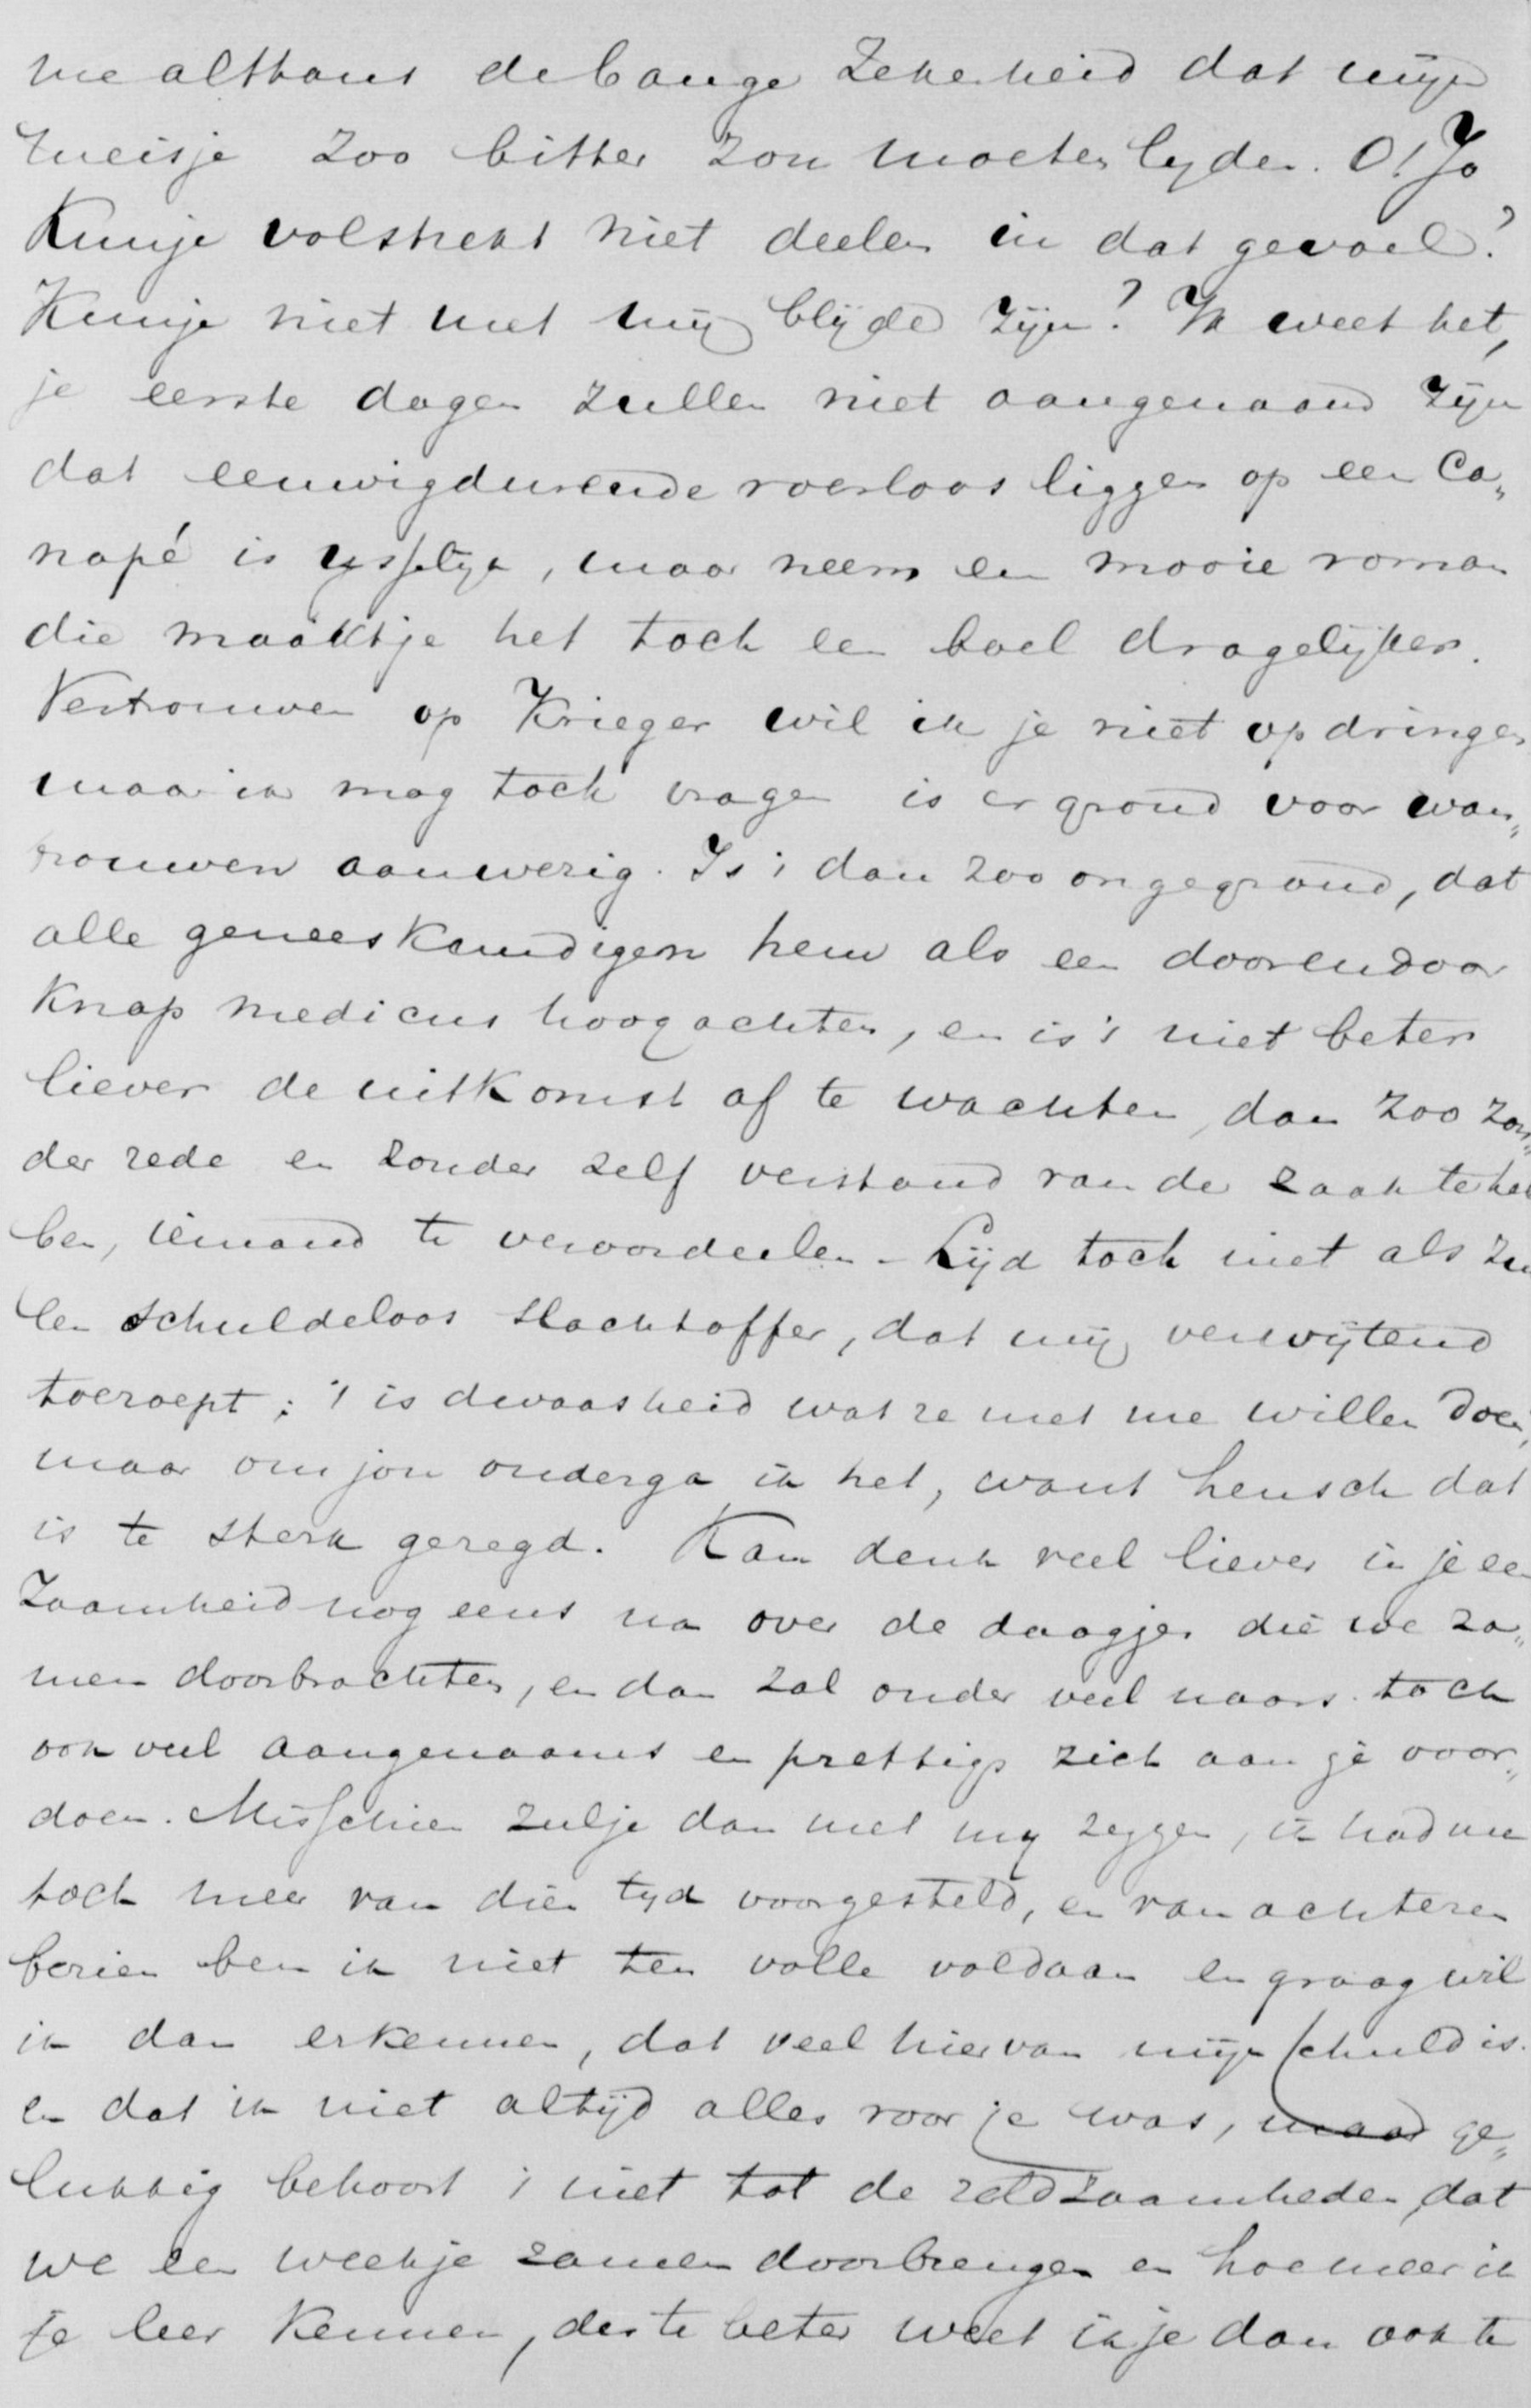 me althans de bange zekerheid dat mijn
meisje zoo bitter zou moeten lyden. O! Jo
Kunje volstrekt niet deelen in dat gevoel?
Kunje niet met mij blijde zijn? Ik weet het,
je eerste dagen zullen niet aangenaam zijn
dat eeuwigdurende roerloos liggen op een Ca„
napé is ysselijk, maar neem een mooie roman
die maaktje het toch een boel dragelijker.
Vertrouwen op Krieger wil ik je niet opdringen
maar ik mag toch vragen is er grond voor wan„
trouwen aanwezig. Is 't dan zoo ongegrond, dat
alle geneeskundigen hem als een doorendoor
Knap medicus hoogachten, en is 't niet beter
liever de uitkomst af te wachten, dan zoo zon„
der rede en zonder zelf verstand van de zaak te heb
ben, iemand te veroordeelen. Lijd toch niet als zu
een schuldeloos slachtoffer, dat mij verwijtend
toeroept; 't is dwaasheid wat ze met me willen doen,
maar om jou onderga ik het, want heusch dat
is te sterk gezegd. Kom denk veel liever in je een
zaamheid nog eens na over de daagjes die we za„
men doorbrachten, en dan zal onder veel naars toch
ook veel aangenaams en prettigs zich aan je voor„
doen. Misschien zulje dan met my zeggen, ik had me
toch meer van dien tyd voorgesteld, en van achteren
bezien ben ik niet ten volle voldaan en graag wil
ik dan erkennen, dat veel hiervan mijn schuld is.
en dat ik niet altijd alles voor je was, maar ge„
lukkig behoort 't niet tot de zeldzaamheden, dat
we een weekje zamen doorbrengen en hoe meer ik
je leer kennen, des te beter weet ik je dan ook te